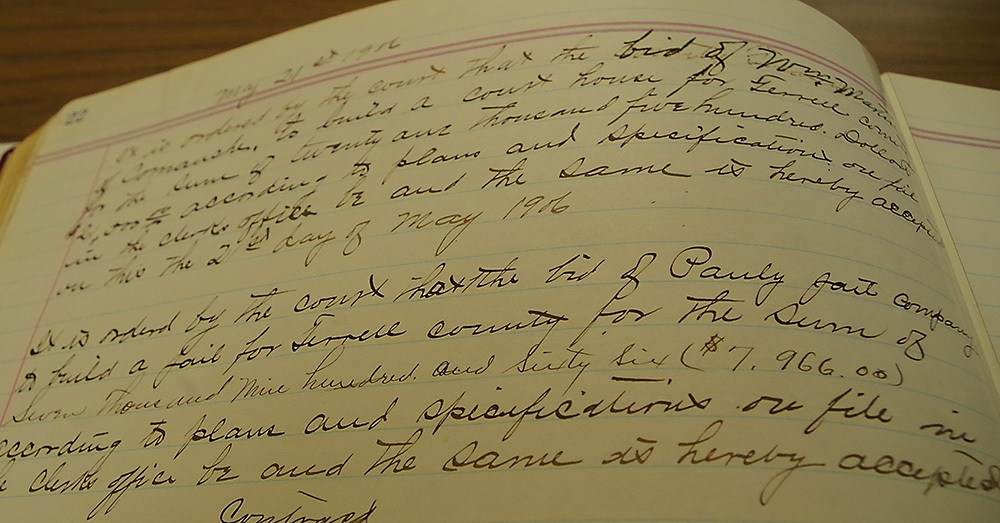 22
May 21st 1906
It is ordered by the court that the bid of Wm Martin
of Comanche, to build a court house for Terrell county
for the sum of twenty one thousand five hundred Dollars
according to plans and specification on file
in the clerks office be and the same is hereby accepted
on this the 21st day of May 1906
It is orderd by the court that the bid of Pauly jail company
to build a jail for Terrell county for the sum of
Seven Thousand Nine hundred and Sixty Six ($7,966.00)
according to plans and specifications on file in
clerks office be and the same is hereby accepted
Contract